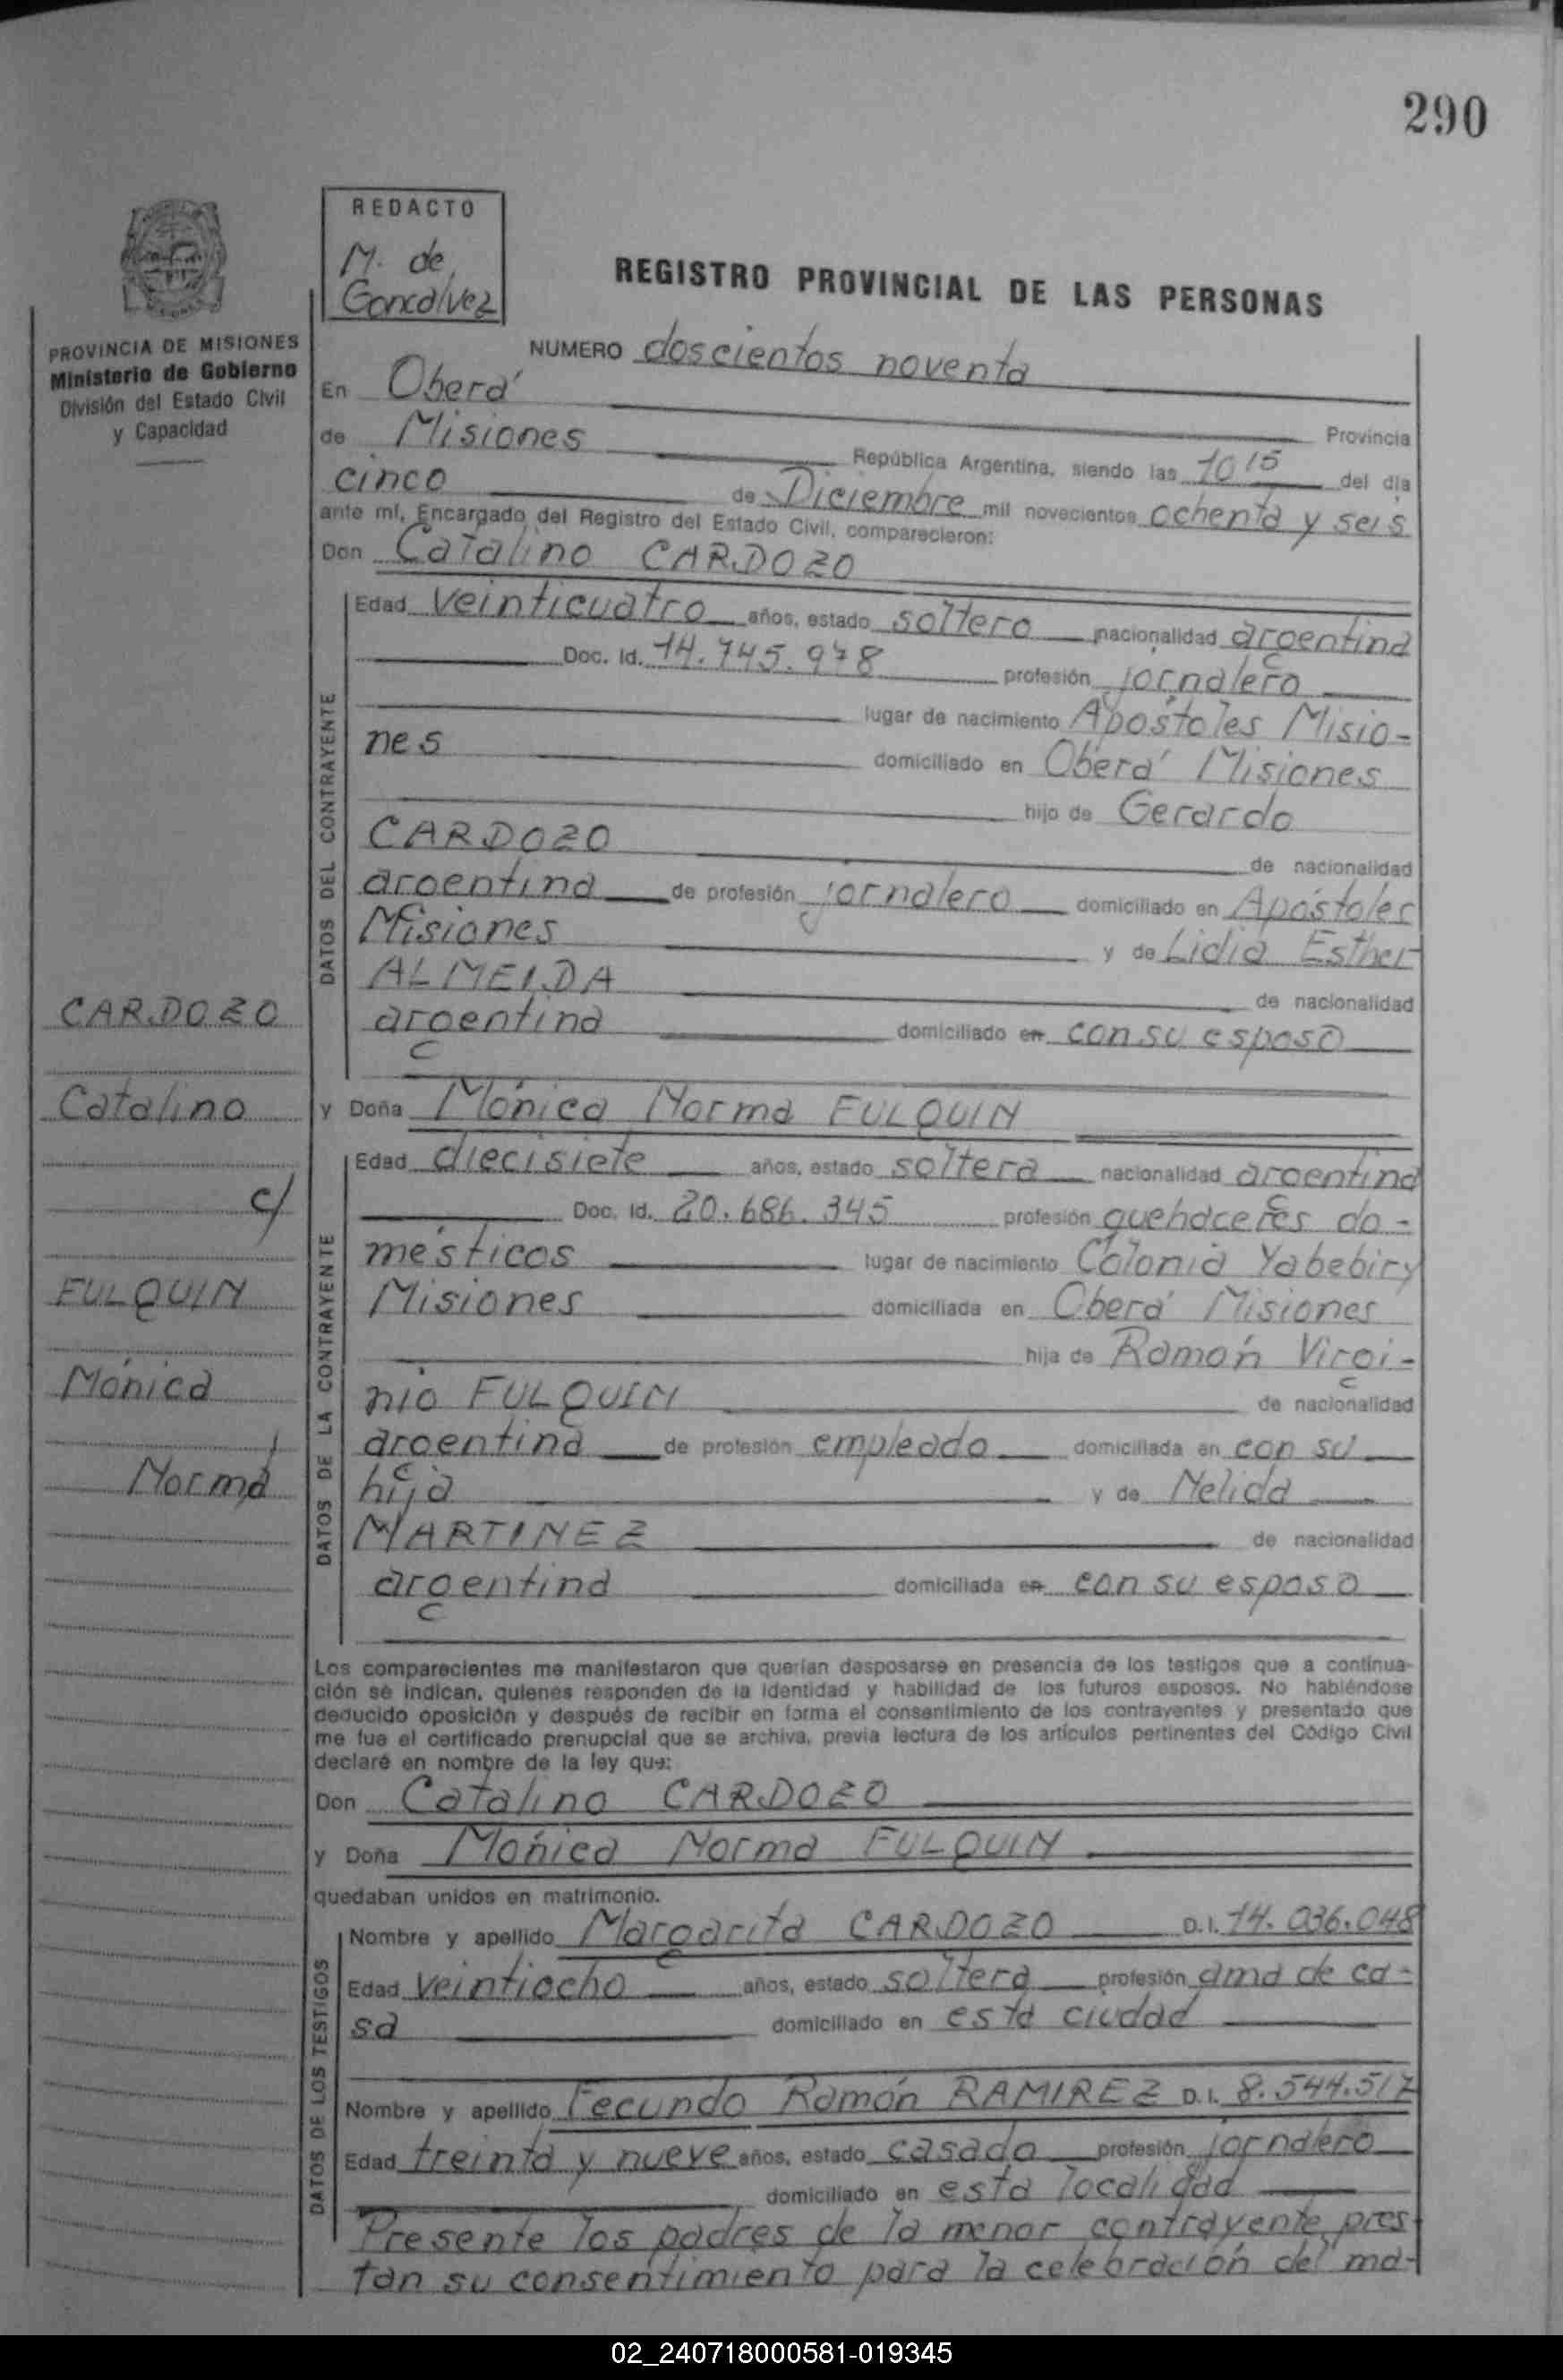 290
REDACTO
M. de
Goncalvez
REGISTRO PROVINCIAL DE LAS PERSONAS
PROVINCIA DE MISIONES
Ministerio de Gobierno
División del Estado Civil
y Capacidad
NUMERO doscientos noventa
En Oberá
Provincia
de Misiones República Argentina, siendo las 10 15 del día
cinco de Diciembre mil novecientos ochenta y seis
ante mí, Encargado del Registro del Estado Civil, comparecieron:
Don Catalino CARDOZO
DATOS DEL CONTRAYENTE
Edad veinticuatro años, estado soltero nacionalidad argentina
Doc. Id. 14.745.978 profesión jornalero
lugar de nacimiento Apóstoles Misio-
nes domiciliado en Oberá Misiones
hijo de Gerardo
CARDOZO de nacionalidad
argentina de profesión jornalero domiciliado en Apóstoles
Misiones y de Lidia Esther
ALMEIDA de nacionalidad
argentina domiciliado en con su esposo
CARDOZO
Catalino
c/
FULQUIN
Mónica
Norma
y Doña Mónica Norma FULQUIN
DATOS DE LA CONTRAYENTE
Edad diecisiete años, estado soltera nacionalidad argentina
Doc. Id. 20.686.345 profesión quehaceres do-
mésticos lugar de nacimiento Colonia Yabebiry
Misiones domiciliada en Oberá Misiones
hija de Ramón Virgi-
nio FULQUIN de nacionalidad
argentina de profesión empleado domiciliada en con su
hija y de Nelida
MARTINEZ de nacionalidad
argentina domiciliada en con su esposo
Los comparecientes me manifestaron que querían desposarse en presencia de los testigos que a continua-
ción se indican, quienes responden de la identidad y habilidad de los futuros esposos. No habiéndose
deducido oposición y después de recibir en forma el consentimiento de los contrayentes y presentado que
me fue el certificado prenupcial que se archiva, previa lectura de los artículos pertinentes del Código Civil
declaré en nombre de la ley que:
Don Catalino CARDOZO
y Doña Mónica Norma FULQUIN
quedaban unidos en matrimonio.
DATOS DE LOS TESTIGOS
Nombre y apellido Margarita CARDOZO D.I. 14.036.048
Edad veintiocho años, estado soltera profesión ama de ca-
sa domiciliado en esta ciudad
Nombre y apellido Fecundo Ramón RAMIREZ D.I. 8.544.517
Edad treinta y nueve años, estado casado profesión jornalero
domiciliado en esta localidad
Presente los padres de la menor contrayente, pres-
tan su consentimiento para la celebración del ma-
02_240718000581-019345